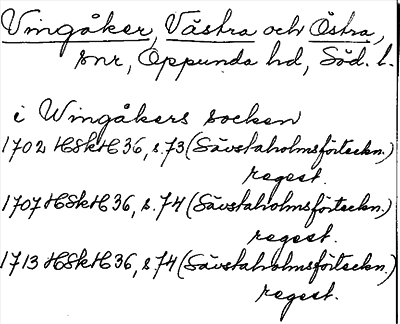 Vingåker, Västra och Östra,
snr, Oppunda hd, Söd. l.
i Wingåkers socken
1702 HSkH 36, s. 73 (Sävstaholmsförteckn.)
regest.
1707 HSkH 36, s. 74 (Sävstaholmsförteckn.)
regest.
1713 HSkH 36, s 74 (Sävstaholmsförteckn.)
regest.